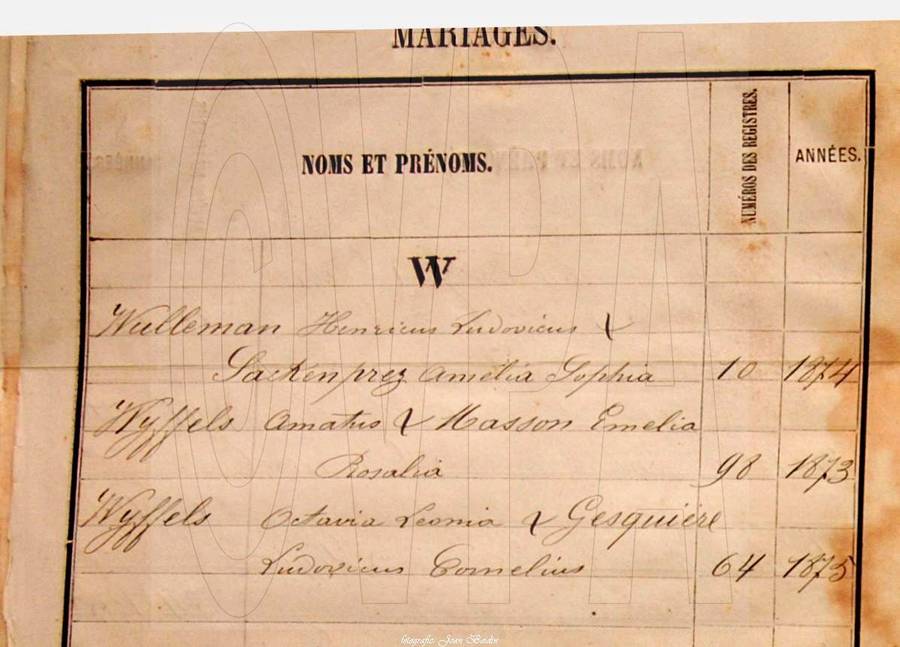 MARIAGES.
NOMS ET PRÉNOMS.
NUMÉROS DES REGISTRES.
ANNÉES.
W
Wulleman Henricus Ludovicus &
Sackenprez Amelia Sophia 10 1874
Wyffels Amatus & Masson Emelia
Rosalia 98 1873
Wyffels Octavia Leonia & Gesquière
Ludovicus Cornelius 64 1875